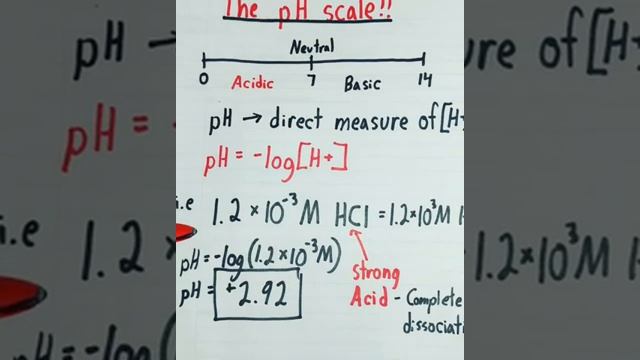 The pH scale!!
Neutral
0 Acidic 7 Basic 14
pH → direct measure of [H+
pH = -log[H+]
i.e 1.2 × 10⁻³ M HCl = 1.2×10³M H
pH = -log(1.2×10⁻³M)
pH = +2.92
Strong
Acid - Complete
dissociati